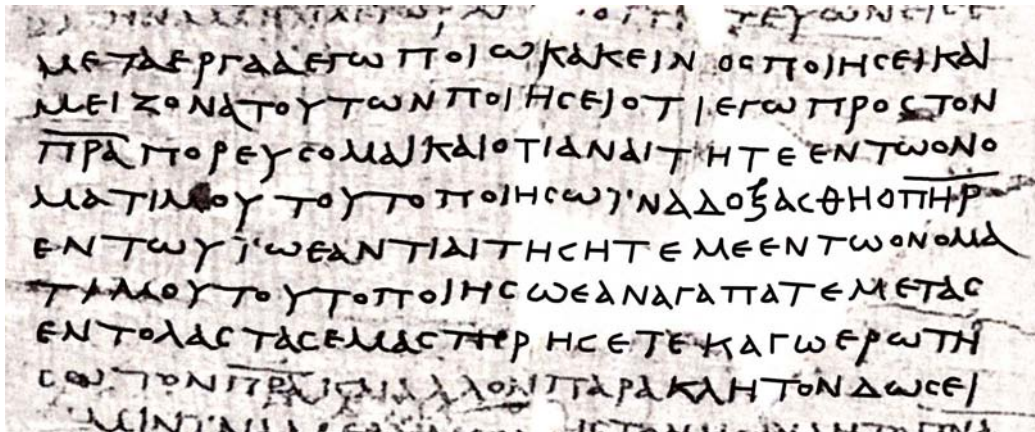 ΤΕΥΩΝΕΙCΕ
ΜΕΤΑΕΡΓΑΑΕΓΩΠΟΙΩΚΑΚΕΙΝΟCΠΟΙΗCΕΙΚΑΙ
ΜΕΙΖΟΝΑΤΟΥΤΩΝΠΟΙΗCΕΙΟΤΙΕΓΩΠΡΟCΤΟΝ
Π̅Ρ̅Α̅ΠΟΡΕΥCΟΜΑΙΚΑΙΟΤΙΑΝΑΙΤΗΤΕΕΝΤΩΟΝΟ
ΜΑΤΙΜΟΥΤΟΥΤΟΠΟΙΗCΩΪΝΑΔΟΞΑCΘΗΟΠ̅Η̅Ρ̅
ΕΝΤΩΥΪΩΕΑΝΤΙΑΙΤΗCΗΤΕΜΕΕΝΤΩΟΝΟΜΑ
ΤΙΜΟΥΤΟΥΤΟΠΟΙΗCΩΕΑΝΑΓΑΠΑΤΕΜΕΤΑC
ΕΝΤΟΛΑCΤΑCΕΜΑCΤΗΡΗCΕΤΕΚΑΓΩΕΡΩΤΗ
CΩΤΟΝΠ̅Ρ̅Α̅ΚΑΙΑΛΛΟΝΠΑΡΑΚΛΗΤΟΝΔΩCΕΙ